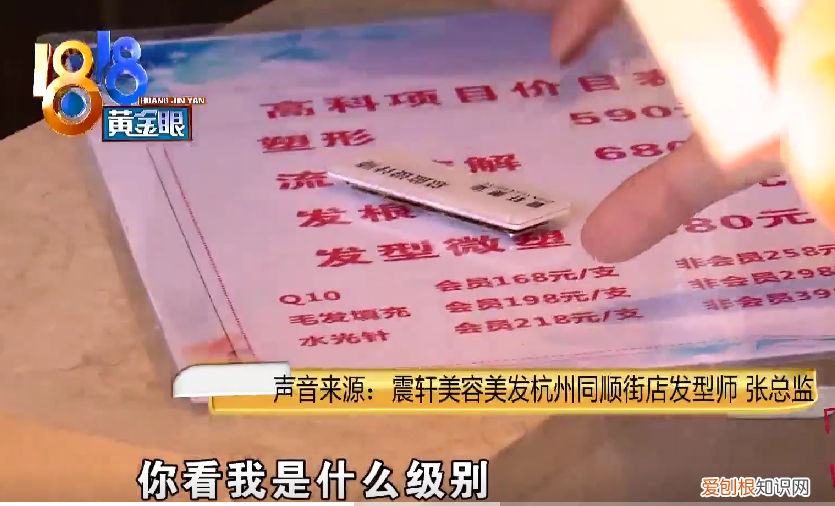 1818
HUANG JIN YAN
黄金眼
高科项目价目表
塑形 590元
解 680
发根
发型微塑 80元
Q10 会员168元/支 非会员258元
毛发填充 会员198元/支 非会员298
水光针 会员218元/支 非会员39
声音来源：震轩美容美发杭州同顺街店发型师 张总监
你看我是什么级别
爱刨根知识网